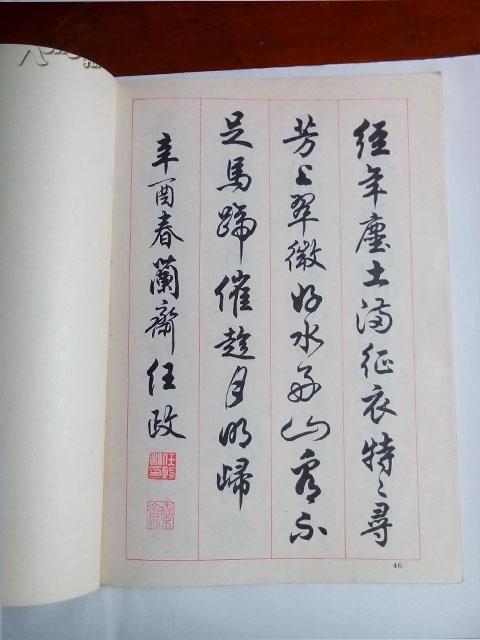 经年尘土满征衣特〻寻
芳上翠微好水好山看不
足马蹄催趁月明归
辛酉春蘭齋任政
46